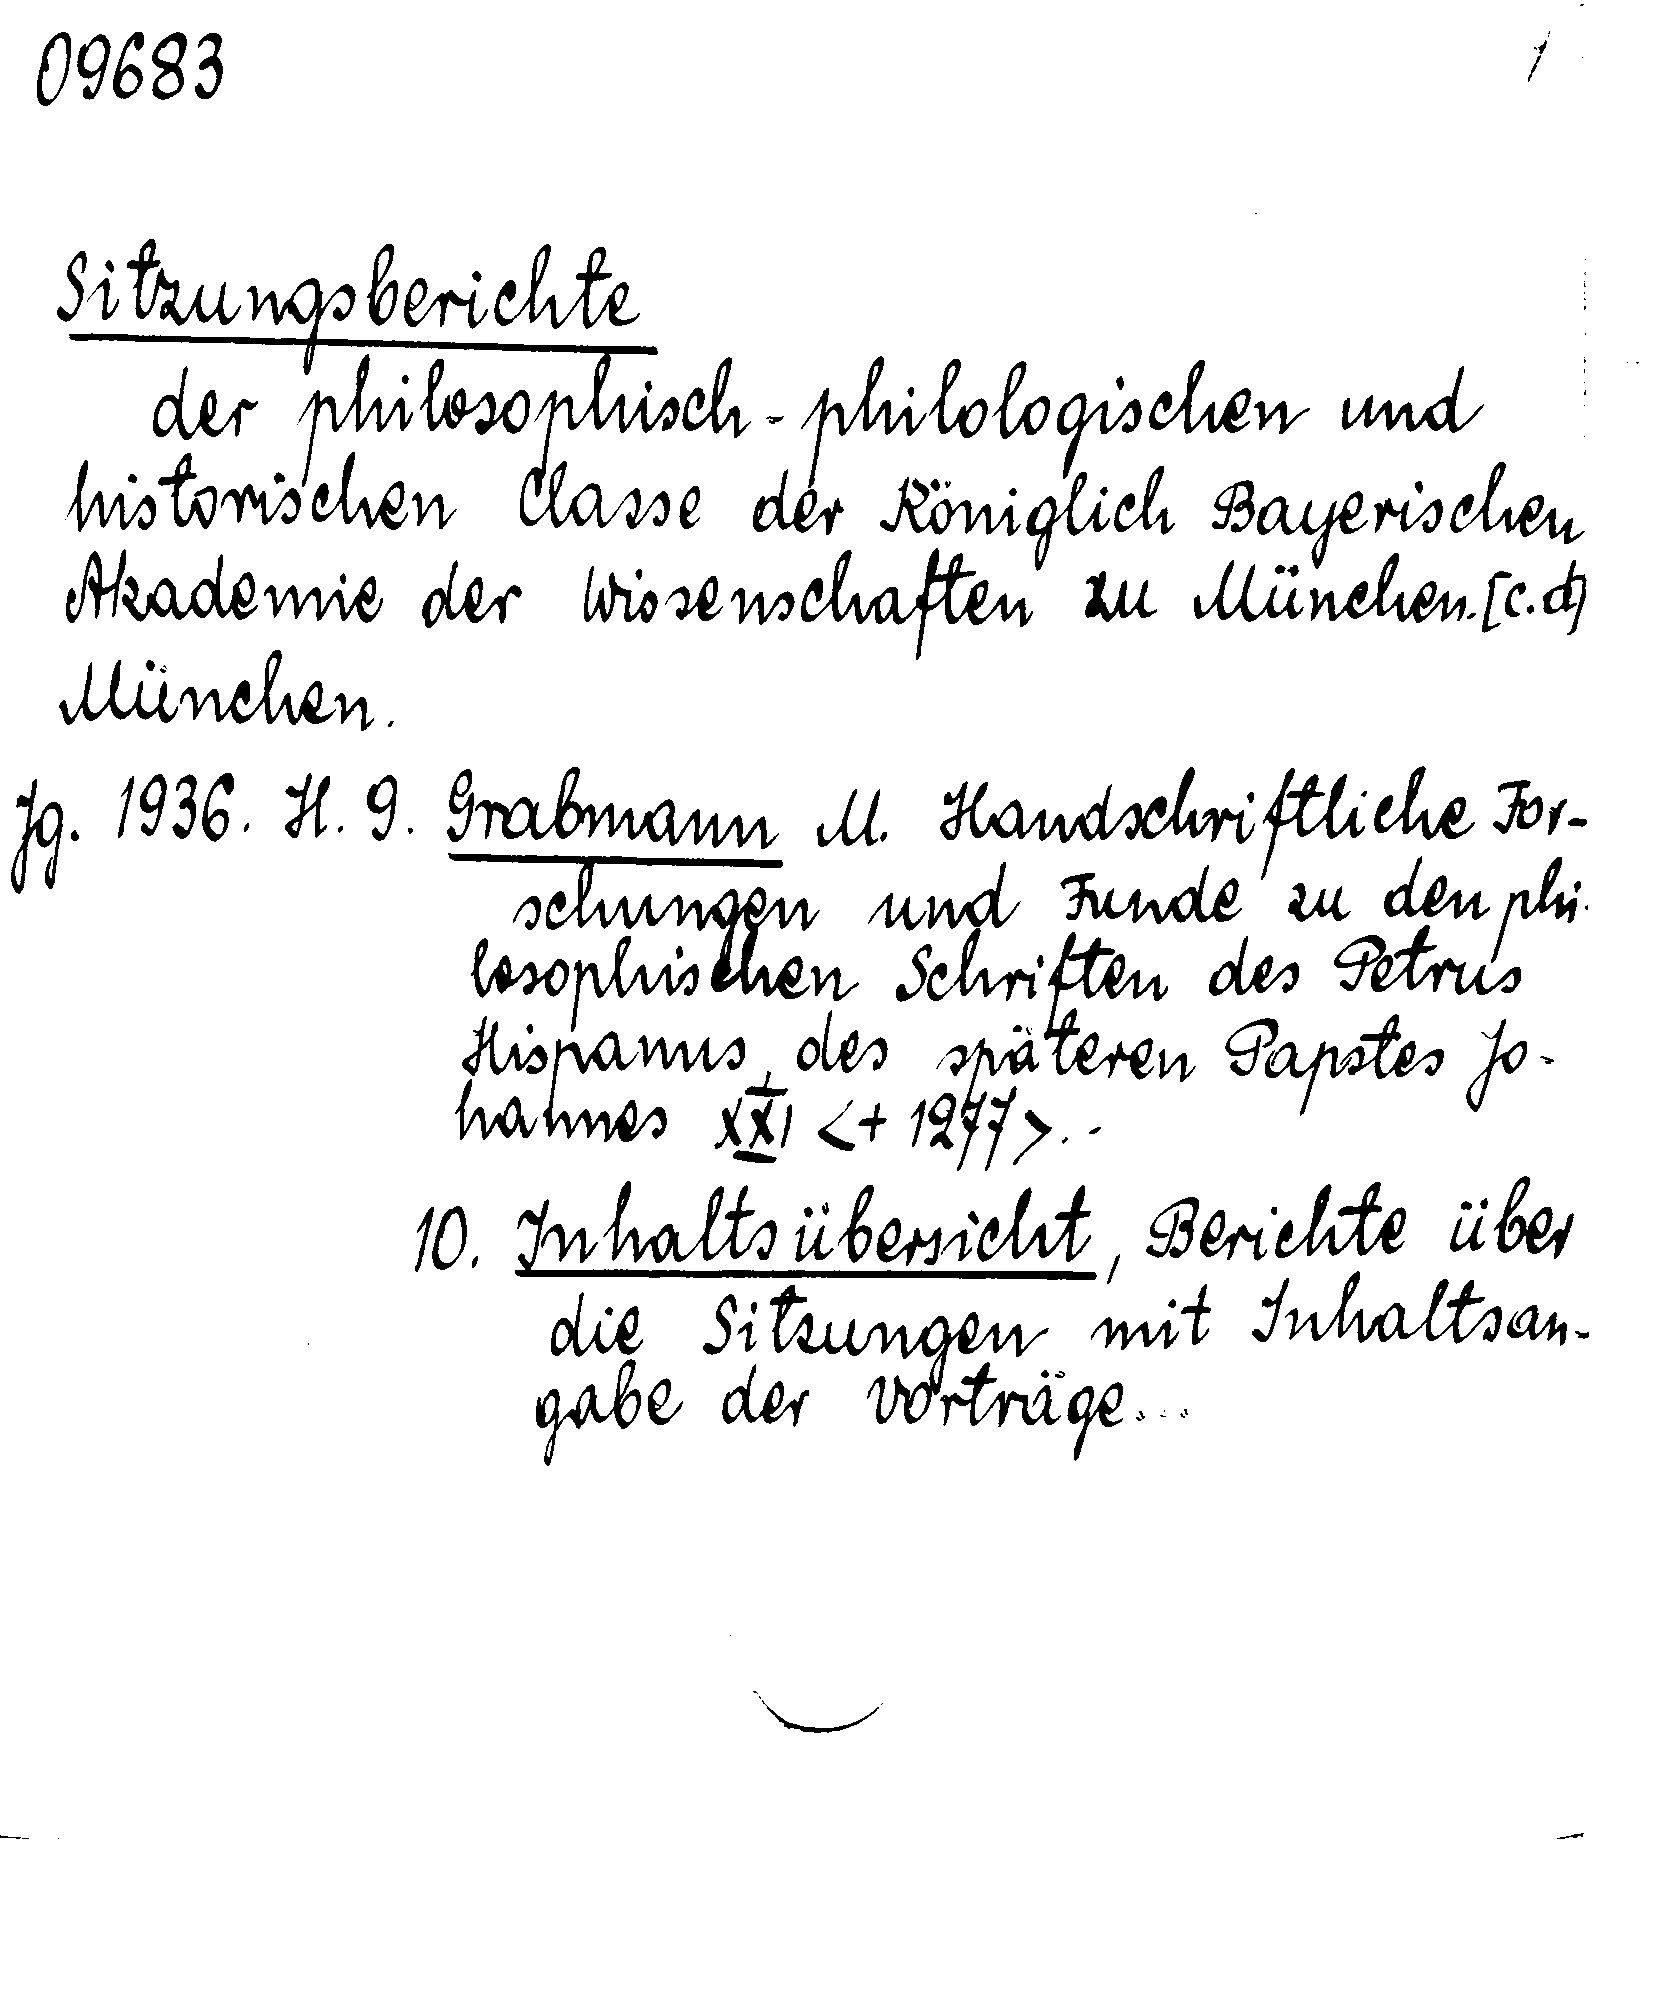 09683
Sitzungsberichte
der philosophisch-philologischen und
historischen Classe der Königlich Bayerischen
Akademie der Wissenschaften zu München. [c.d]
München.
Jg. 1936. H. 9. Grabmann M. Handschriftliche For-
schungen und Funde zu den phi-
losophischen Schriften des Petrus
Hispanus, des späteren Papstes Jo-
hannes XXI <+ 1277>.-
10. Inhaltsübersicht, Berichte über
die Sitzungen mit Inhaltsan-
gabe der Vorträge...